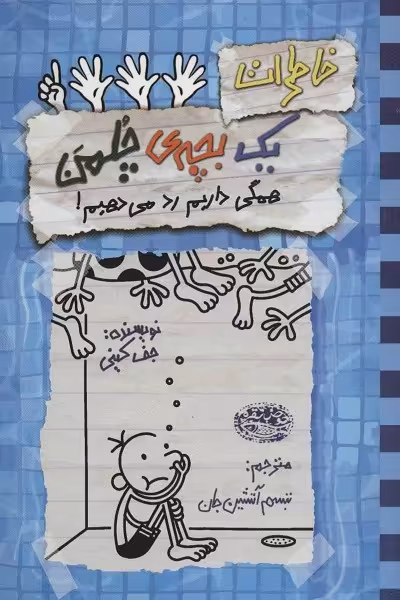 خاطرات
یک بچه‌ی چلمن
همگی داریم رد می‌دهیم!
نویسنده:
جف کینی
مترجم:
تبسم آتشین جان